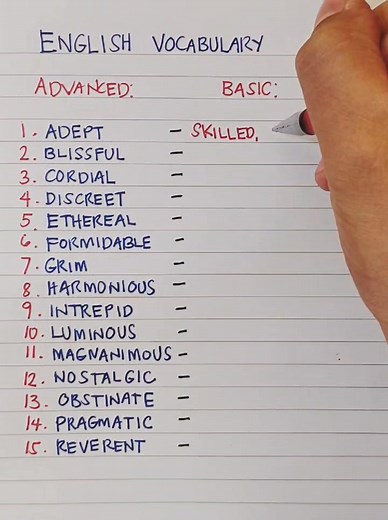 ENGLISH VOCABULARY
ADVANCED: BASIC:
1. ADEPT - SKILLED,
2. BLISSFUL -
3. CORDIAL -
4. DISCREET -
5. ETHEREAL -
6. FORMIDABLE -
7. GRIM -
8. HARMONIOUS -
9. INTREPID -
10. LUMINOUS -
11. MAGNANIMOUS -
12. NOSTALGIC -
13. OBSTINATE -
14. PRAGMATIC -
15. REVERENT -